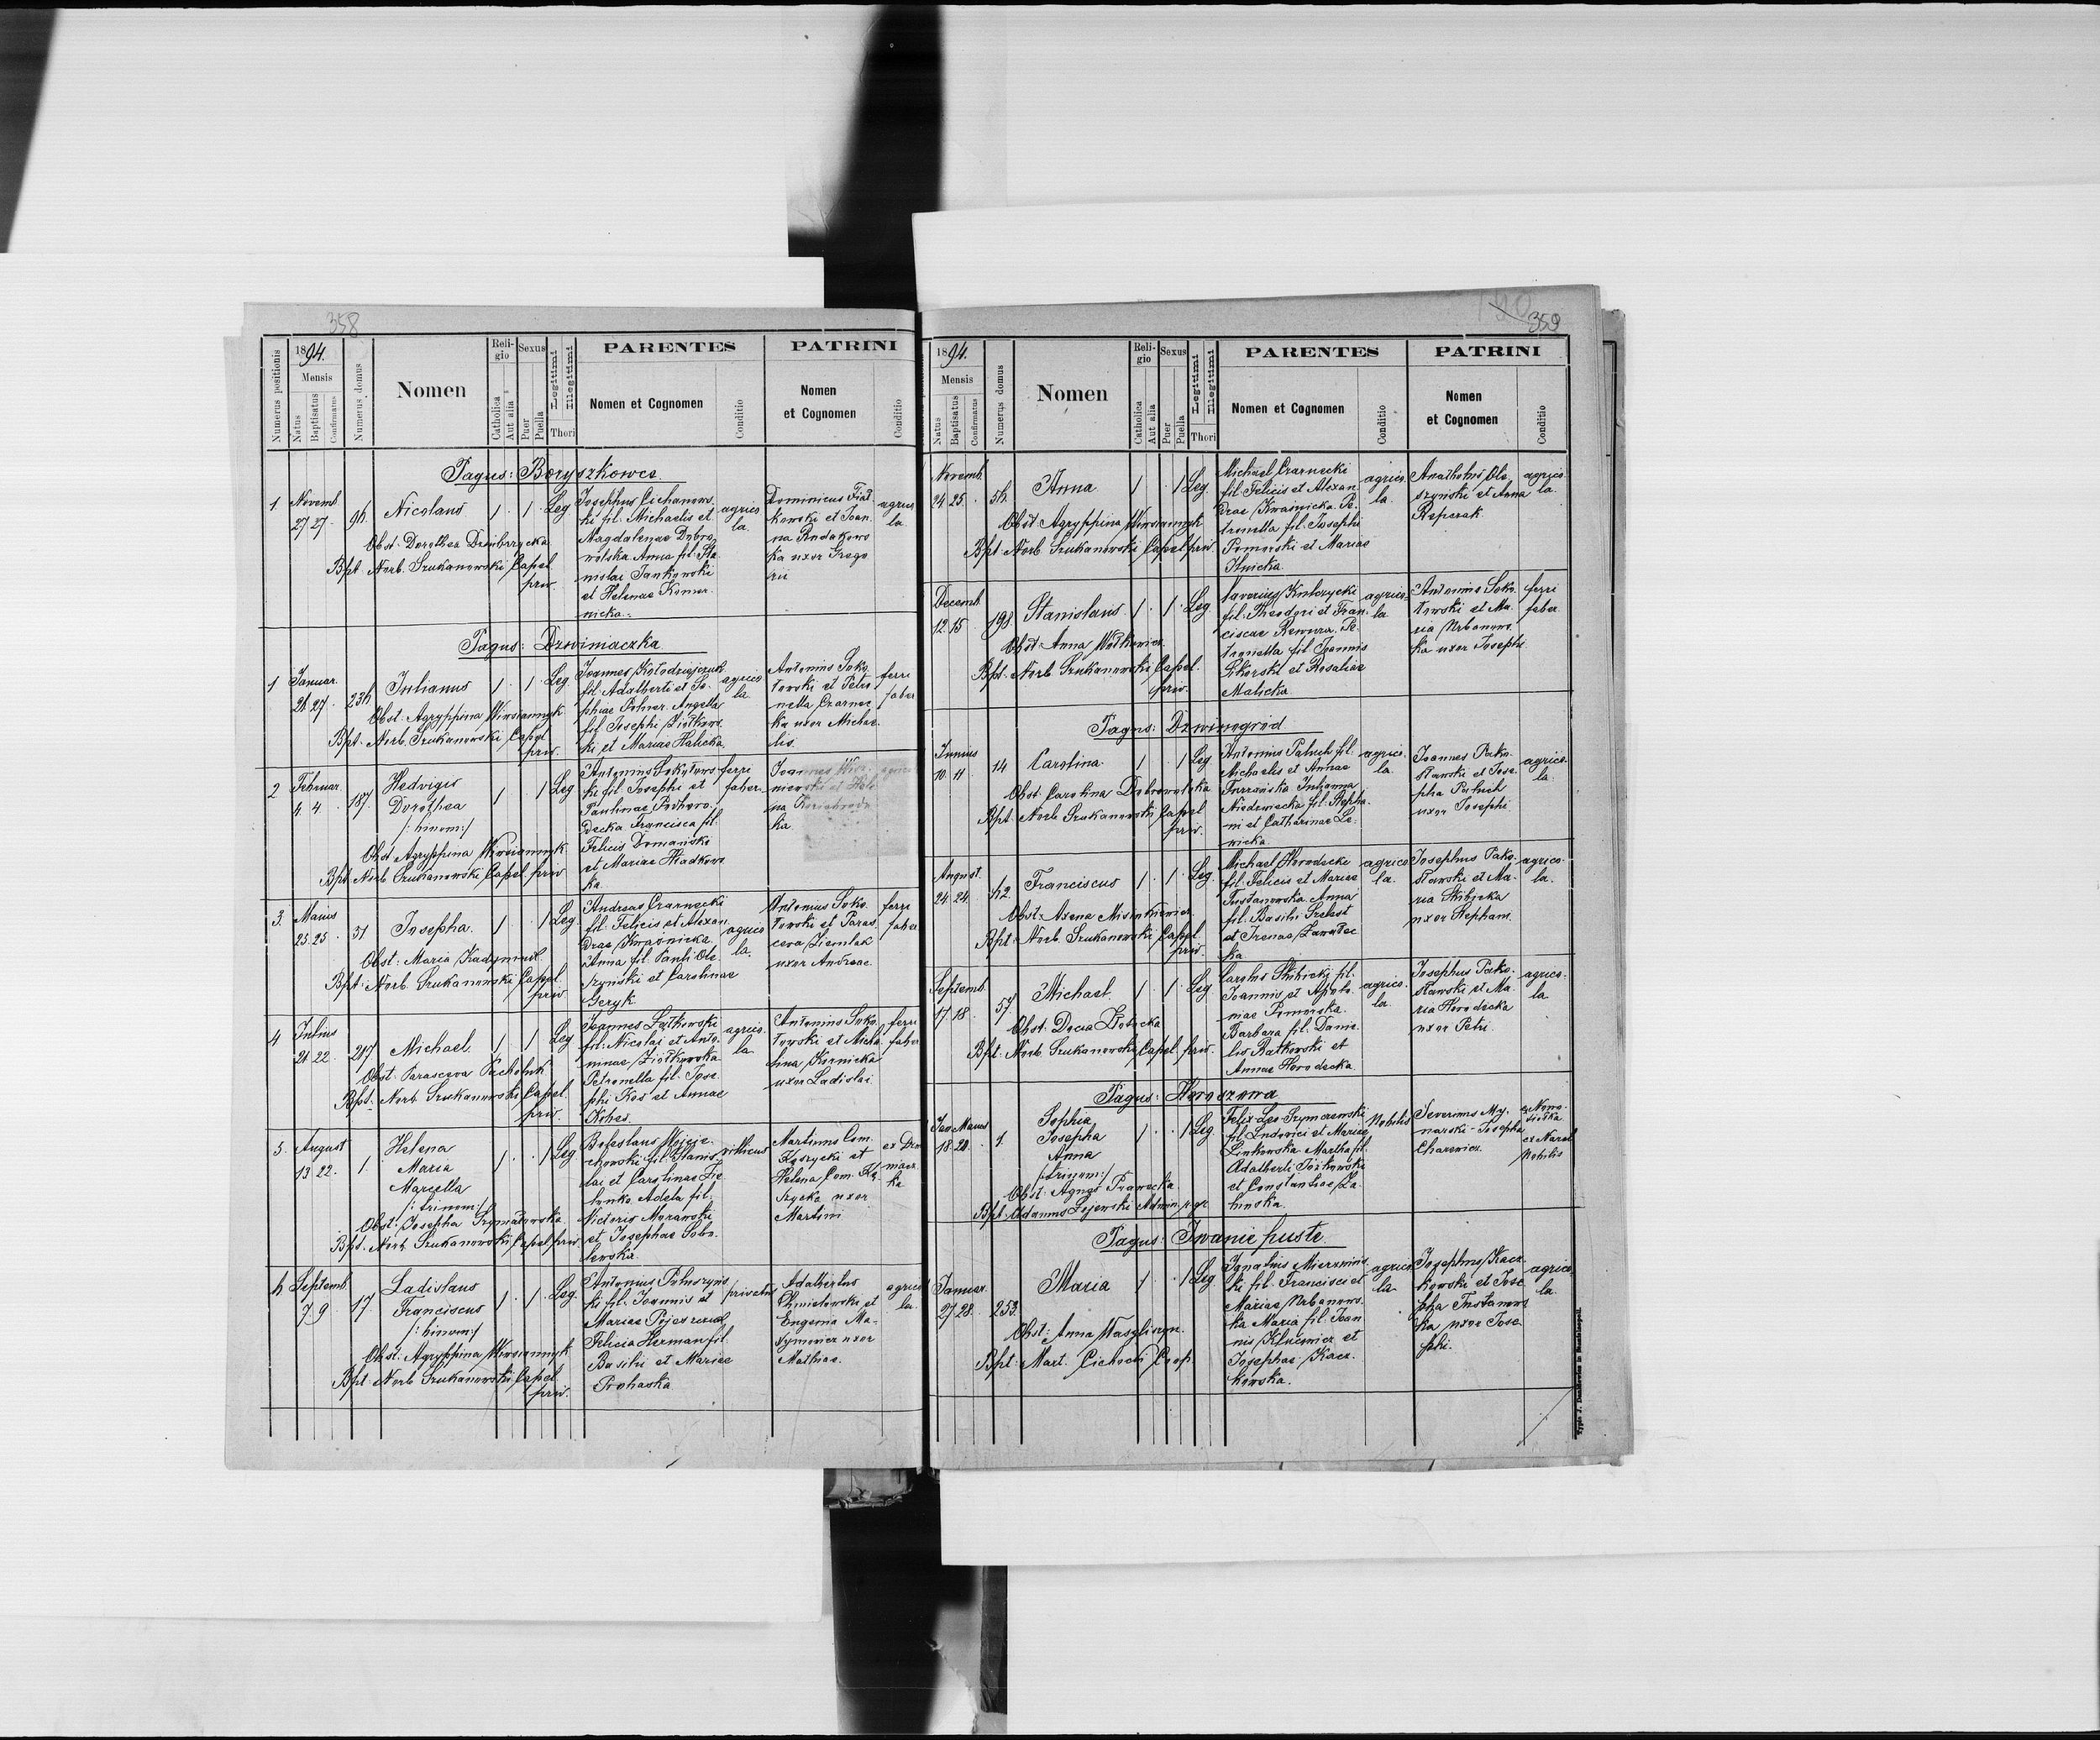 358
Numerus positionis
1894.
Mensis
Natus
Baptisatus
Confirmatus
Numerus domus
Nomen
Religio
Catholica
Aut alia
Sexus
Puer
Puella
Legitimi
Illegitimi
Thori
PARENTES
Nomen et Cognomen
Conditio
PATRINI
Nomen
et Cognomen
Conditio
Pagus: Boryszkowce
1 Novemb. 27 27
Nicolaus
1 1 Leg
Obst: Dorothea
Bpt Norb. Szukanowski Capel
priv.
Josephus Cichanows
ki fil. Michaelis et
Magdalenae Dobro
wolska Anna fil. Sta
nislai Jankowski
et Helenae Komar
nicka.
agrico
la
Dominicus Fiał
kowski et Joan
na Rudakows
ka uxor Grego
rii
agrico
la
Pagus: Dzwiniaczka
1 Januar. 27
Julianus
1 1 Leg
Obst. Agryppina
Bpt. Norb. Szukanowski Capel
priv.
Joannes Kołodziejczuk
fil. Adalberti et So
phiae Angella
fil. Josephi Ziółkows
ki et Mariae Halicka
agrico
la
Antonius Soko
łowski et Petro
nella Czarnec
ka uxor Michae
lis.
ferri
faber
2 Februar. 4 4 187
Hedvigis
Dorothea
/:binom:/
1 1 Leg
Obst Agryppina
Bpt. Norb. Szukanowski Capel priv
Antonius Sokołows
ki fil Josephi et
Paulinae Podhoro
decka Francisca fil.
Felicis Domańska
et Mariae Hładkows
ka
ferri
faber
Joannes
ka
3. Maius 25 25 31
Josepha.
1 1 Leg
Obst: Maria
Bpt: Norb. Szukanowski Capel.
priv
Andreas Czarnecki
fil. Felicis et Alexan
drae Kwaśnicka
Anna fil. Pauli Ole
szyński et Carolinae
Geryk.
agrico
la.
Antonius Soko
łowski et Paras
ceva Ziemlak
uxor Andreae
ferri
faber
4 Julius 21 22 207
Michael
1 1 Leg
Obst. Parasceva Pacholuk
Bpt. Norb Szukanowski Capel.
priv.
Joannes
fil. Nicolai et Anto
ninae Ziółkowska
Petronella fil. Jose
phi Kos et Annae
agrico
la
Antonius Soko
łowski et Micha
lina Kornicka
uxor Ladislai
ferri
faber
5 August 13 22. 1.
Helena
Maria
Marcella
/:trinom:/
1 1 Leg
Obst: Josepha Szymańowska
Bpt. Norb. Szukanowski Capel priv.
Boleslaus Mojcie
chowski fil. Stanis
lai et Carolinae
Adela fil.
Victoris Morawski
et Josephae Sobo
lewska
villicus
Martinus Com.
et
Helena Com.
uxor
Martini
Septemb. 7 9 17
Ladislaus
Franciscus
/:binom:/
1 1 Leg.
Obst. Agryppina
Bpt Norb Szukanowski Capel
priv.
Antonius
ki fil. Joannis et
Mariae
Felicia Herman fil.
Basilii et Mariae
Prohaska
privatus
Adalbertus
Chmielowski et
Eugenia Ma-
uxor
Mathiae.
agrico
la.
359
1894.
Mensis
Natus
Baptisatus
Confirmatus
Numerus domus
Nomen
Religio
Catholica
Aut alia
Sexus
Puer
Puella
Legitimi
Illegitimi
Thori
PARENTES
Nomen et Cognomen
Conditio
PATRINI
Nomen
et Cognomen
Conditio
Novemb. 24 25
Anna
1 1 Leg.
Obst Agryppina
Bpt. Norb Szukanowski Capel priv.
Michael Czarnecki
fil. Felicis et Alexan
drae Kwaśnicka Pe
tronella fil. Josephi
Pomorski et Mariae
agrico
la.
Anatholius Ole
szyński et Anna
Repczak
agrico
la.
Decemb. 12 15 198
Stanislaus
1 1 Leg
Obst. Anna Wołkowicz
Bpt. Norb Szukanowski Capel.
priv.
Xaverius
fil. Theodori et Fran
ciscae Pe
tronella fil Joannis
Sikorski et Rosaliae
Malicka
agrico
la
Antonius Soko
łowski et Ma
ria Urbanows
ka uxor Josephi
ferri
faber
Pagus: Dzwinogród
Junius 10 11 14
Carolina
1 1 Leg
Obst Carolina Dobrowolska
Bpt. Norb Szukanowski Capel
priv.
Antonius Paluch fil.
Michaelis et Annae
Julianna
Niedzwiecka fil. Stepha
ni et Catharinae Le
wicka.
agrico
la.
Joannes Pako
sławski et Jose
pha Paluch
uxor Josephi
agrico
la.
August. 24 24.
Franciscus
1 1 Leg.
Obst. Axena
Bpt. Norb. Szukanowski Capel
priv.
Michael Horodecki
fil. Felicis et Mariae
Tustanowska Anna
fil. Basilii
et Irenae Zawadec
ka
agrico
la.
Josephus Pako
sławski et Ma
ria Skibicka
uxor Stephani.
agrico
la.
Septemb. 17 18 57
Michael
1 1 Leg
Obst: Docia
Bpt. Norb Szukanowski Capel priv.
Carolus Skibicki fil.
Joannis et Apolo
niae Pomorska.
Barbara fil. Danie
lis Ratkowski et
Annae Horodecka.
agrico
la
Josephus Pako
sławski et Ma
ria Horodecka
uxor Petri
agrico
la
Pagus: Horoszowa
Maius 18 20 1.
Sophia
Josepha
Anna
/:trinom:/
1 1 Leg
Obst. Agnes
Bpt. Adamus Administr.
Felix Leo
fil. Ludovici et Mariae
Linkowska Martha fil.
Adalberti
et Constantiae
Nobilis
Severinus
narski Josepha
Charewicz
Nobilis
Pagus: Iwanie puste
Januar. 27 28. 253.
Maria
1 1 Leg
Obst: Anna
Bpt. Mart. Cichocki Coop.
Ignatius
ki fil. Francisci et
Mariae Urbanows
ka Maria fil. Joan
nis et
Josephae Kacz
kowska.
agrico
la
Josephus Kacz
kowski et Jose
pha Tustanows
ka uxor Jose
phi.
agrico
la.